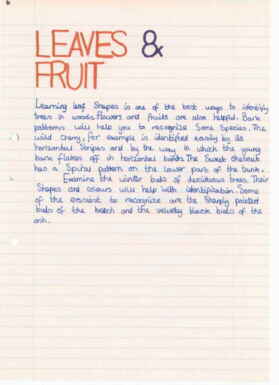 LEAVES &
FRUIT
Learning leaf Shapes is one of the best ways to identify
trees in woods. Flowers and fruits are also helpful. Bark
patterns will help you to recognize Some Species. The
wild Cherry, for example is identified easily by its
horizontal Stripes and by the way in which the young
bark flakes off in horizontal The Sweet chestnut
has a Spiral pattern on the lower part of the trunk.
Examine the winter buds of deciduous trees. Their
Shapes and colours will help with identification. Some
of the easiest to recognize are the Sharply pointed
buds of the beech and the velvety black buds of the
ash.